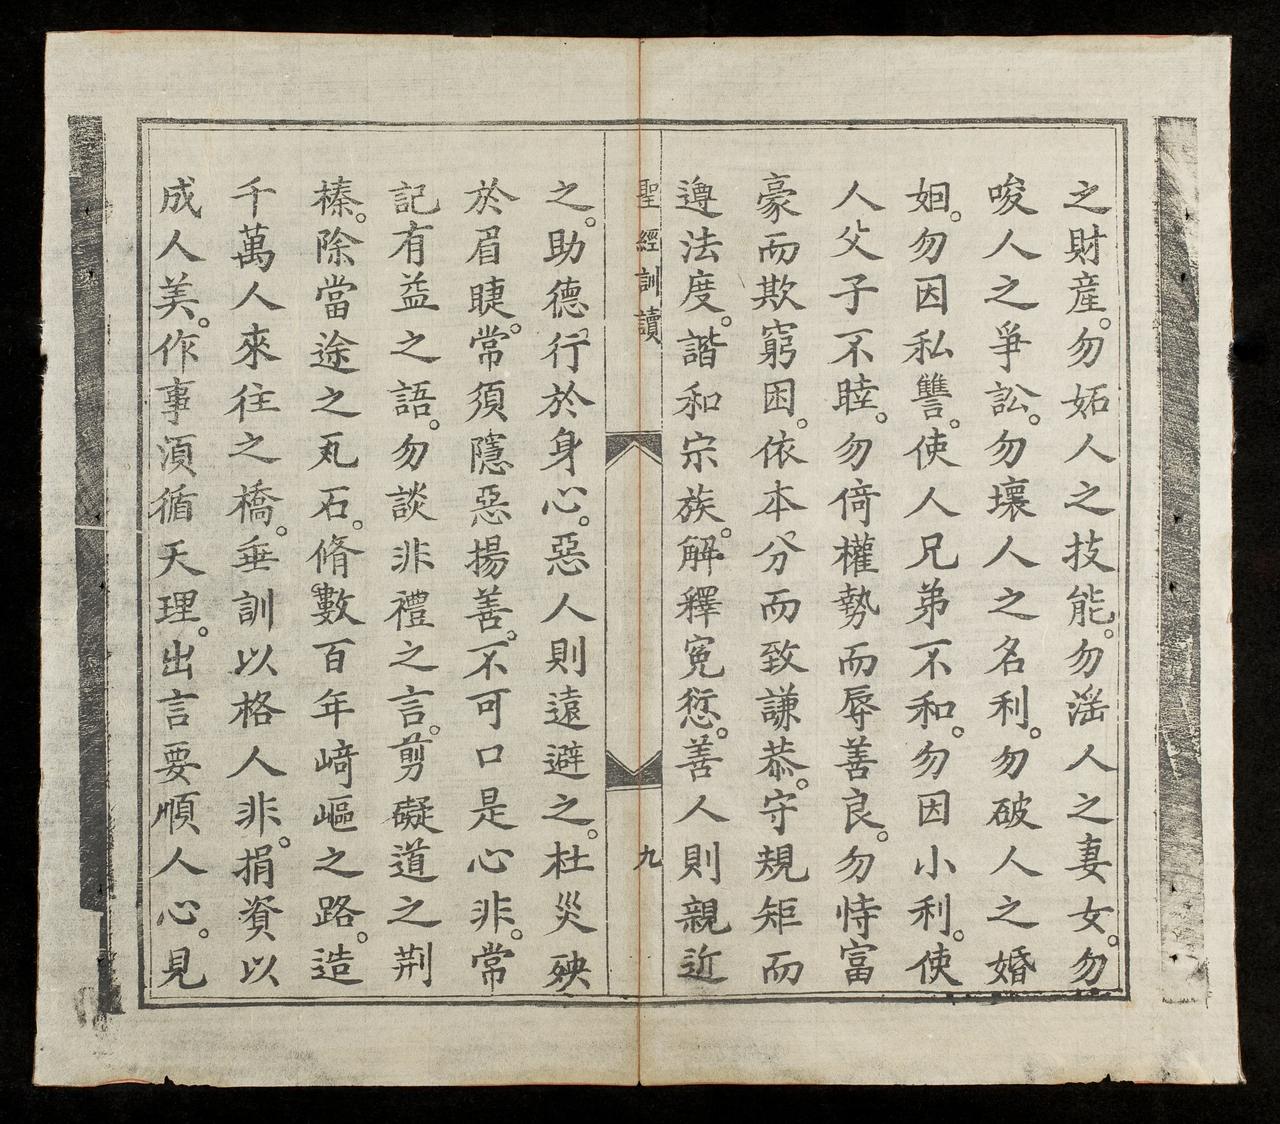 之財產。勿妬人之技能。勿滛人之妻女。勿
唆人之爭訟。勿壞人之名利。勿破人之婚
姻。勿因私讐。使人兄弟不和。勿因小利。使
人父子不睦。勿倚權勢而辱善良。勿恃富
豪而欺窮困。依本分而致謙恭。守規矩而
遵法度。諧和宗族。解釋寃愆。善人則親近
聖經訓讀
九
之。助德行於身心。惡人則遠避之。杜災殃
於眉睫。常須隱惡揚善。不可口是心非。常
記有益之語。勿談非禮之言。剪礙道之荆
榛。除當途之瓦石。脩數百年﨑嶇之路。造
千萬人來往之橋。垂訓以格人非。捐資以
成人美。作事湏循天理。出言要順人心。見